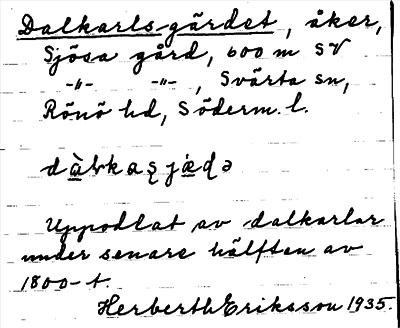 Dalkarls-gärdet, åker,
Sjösa gård, 600 m SV
-"- -"-, Svärta sn,
Rönö hd, Söderm. l.
Uppodlat av dalkarlar
under senare hälften av
1800-t.
Herberth Eriksson 1935.